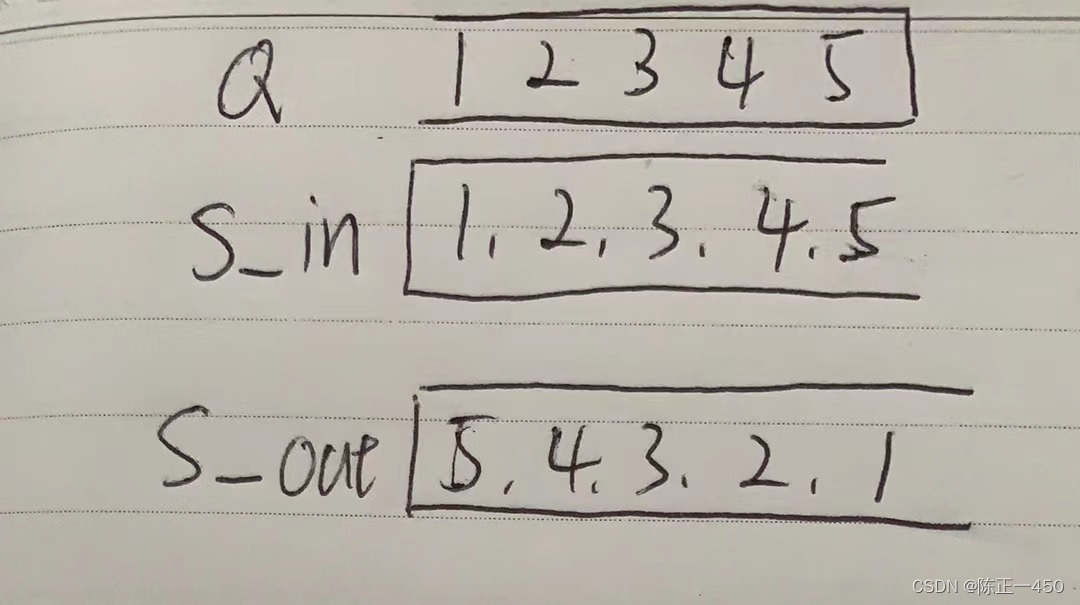 Q 1 2 3 4 5
S_in 1. 2. 3. 4. 5
S_out 5. 4. 3. 2. 1
CSDN @陈正一450